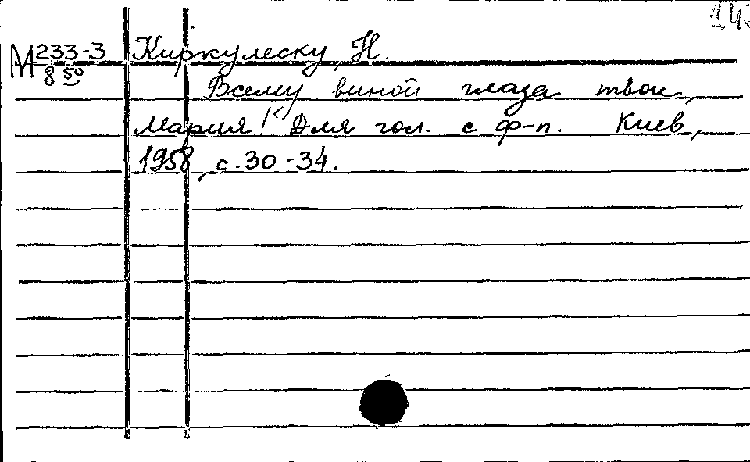 М 233-3 Киркулеску, Н.
8 50
Всему виной глаза твои,
Мария! Для гол. с ф-п. Киев,
1958, с. 30-34.